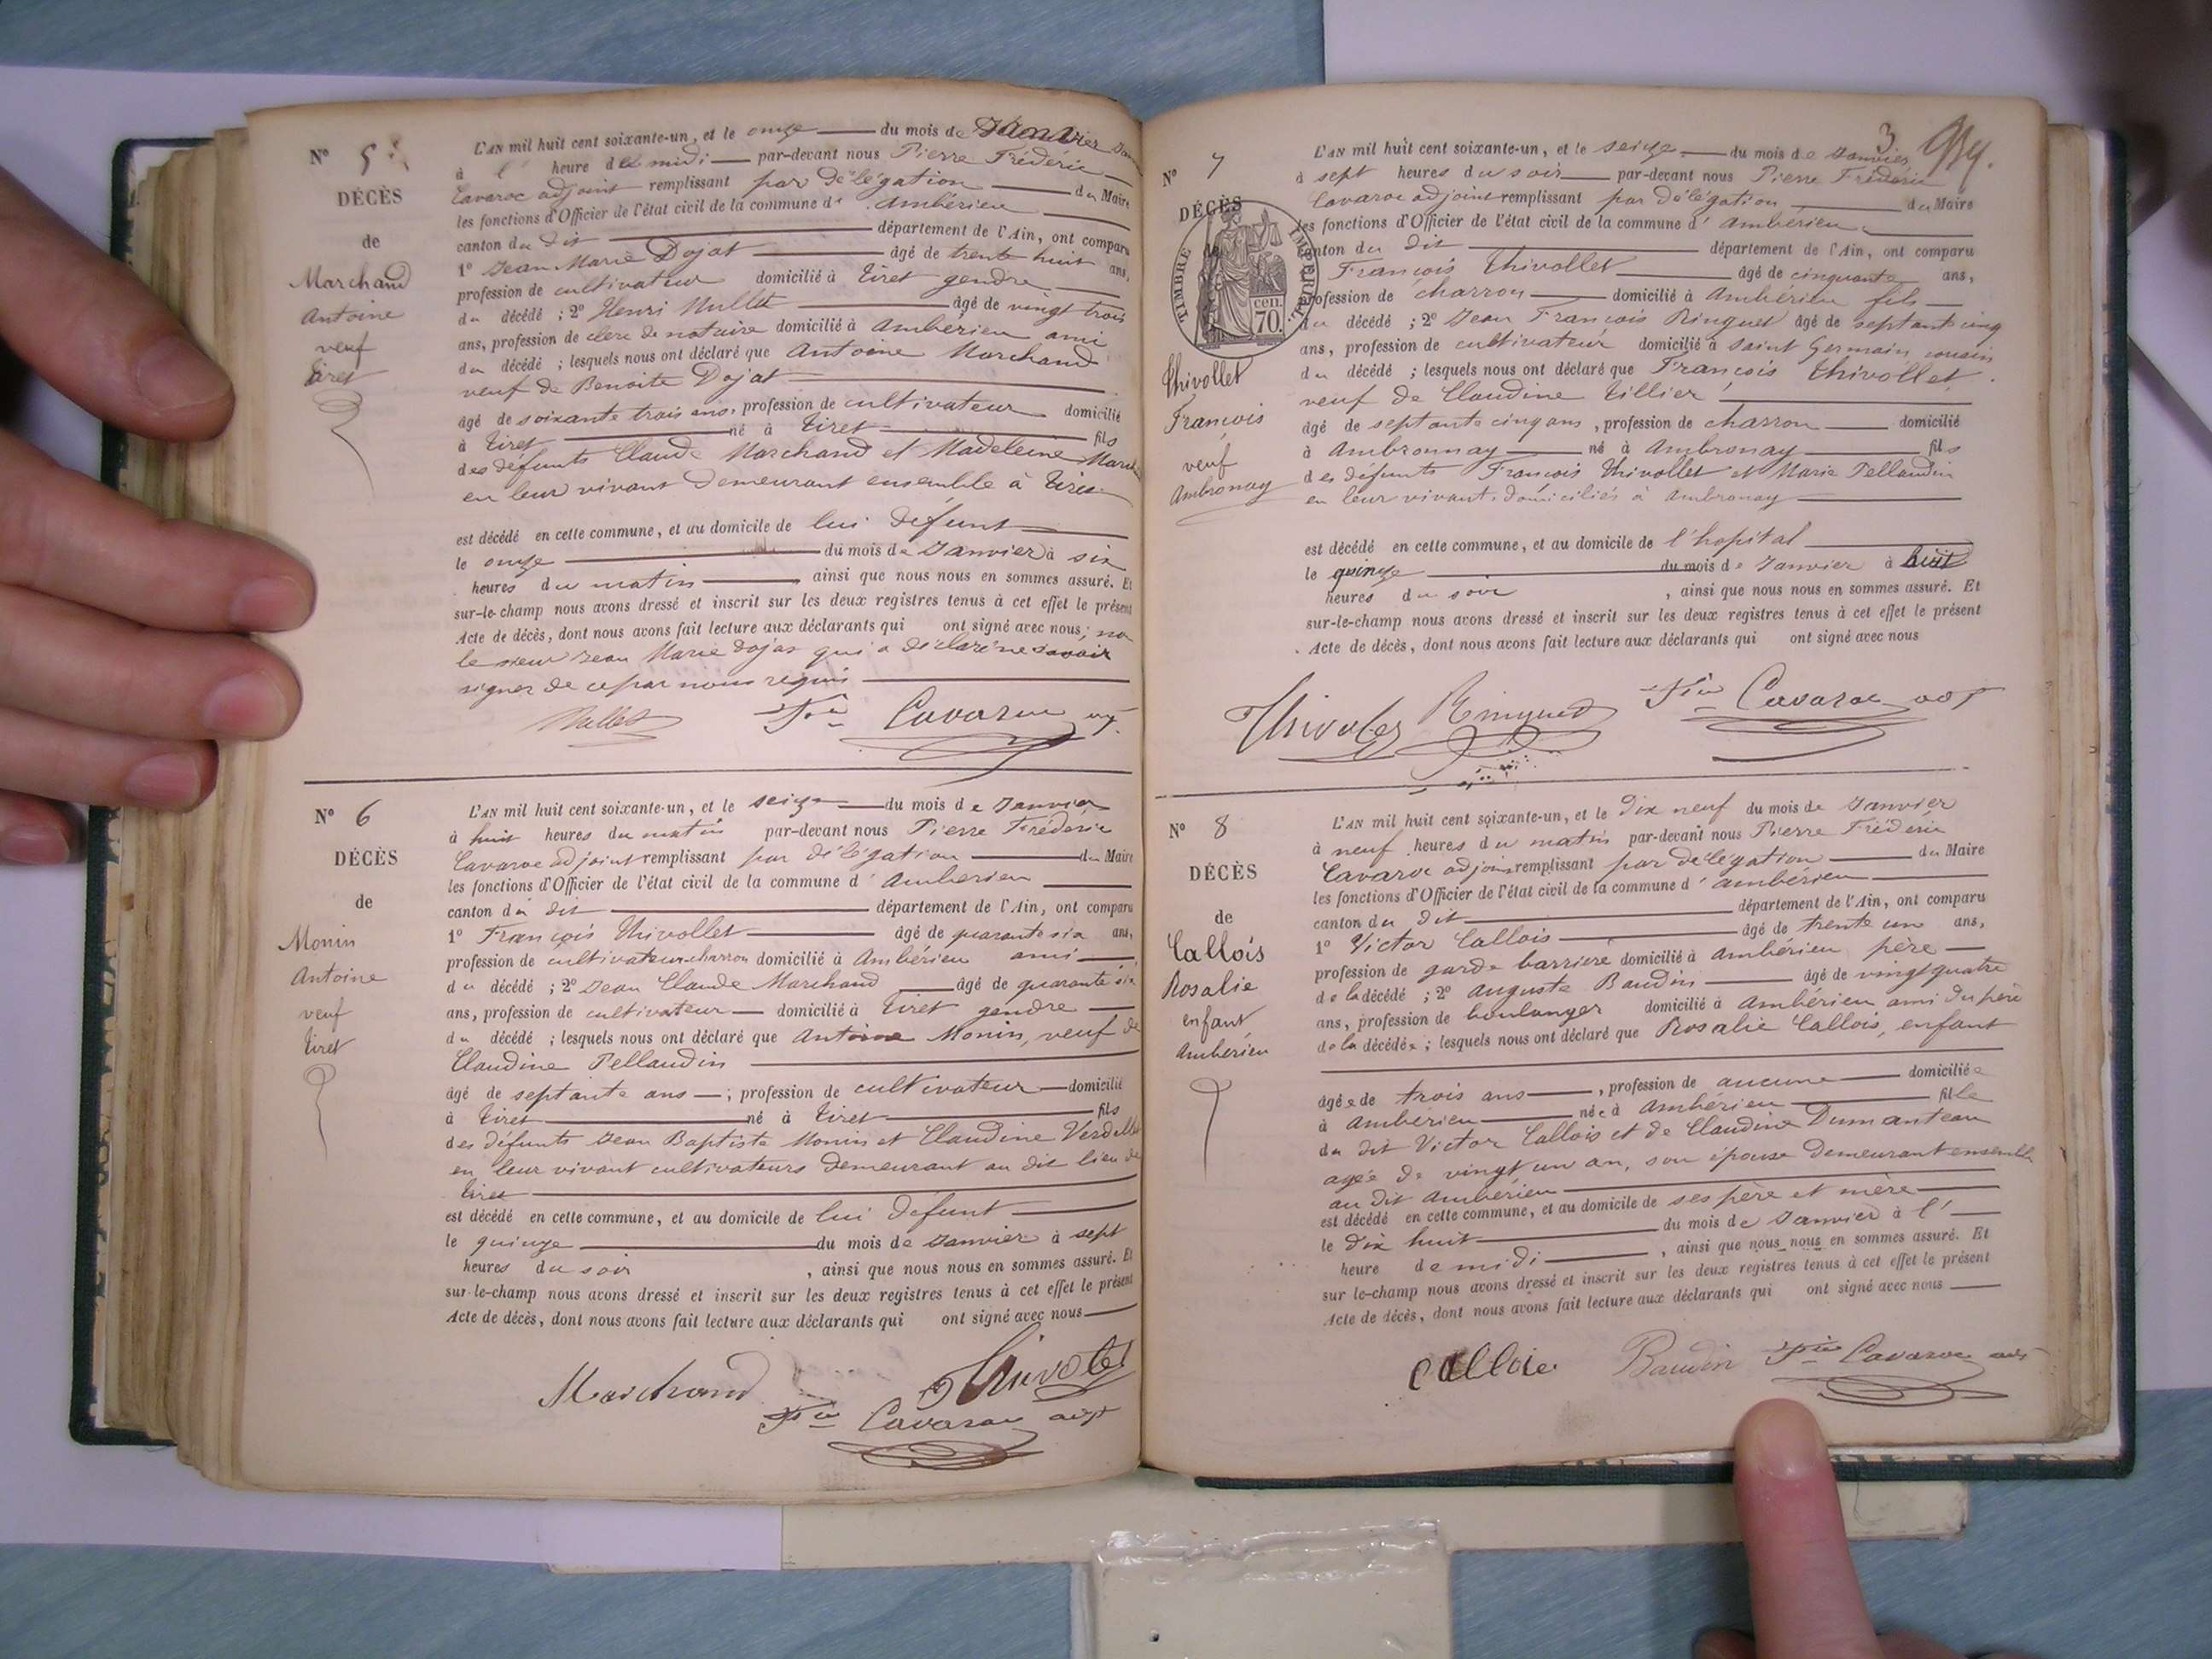 N° 5
DÉCÈS
de
Marchand
Antoine
veuf
tiret
L'AN mil huit cent soixante-un, et le onze du mois de Janvier
à l' heure de midi par-devant nous Pierre Fréderic
Cavaroc adjoint remplissant par délégation du Maire
les fonctions d'Officier de l'état civil de la commune d' Ambérieu
canton du dit département de l'Ain, ont comparu
1° Jean Marie Dojat âgé de trente huit ans,
profession de cultivateur domicilié à tiret gendre
du décédé ; 2° Henri Mullet âgé de vingt trois
ans, profession de clerc de notaire domicilié à Ambérieu ami
du décédé ; lesquels nous ont déclaré que Antoine Marchand
veuf de Benoite Dojat
âgé de soixante trois ans, profession de cultivateur domicilié
à tiret né à tiret fils
des défunts Claude Marchand et Madeleine
en leur vivant demeurant ensemble à tiret
est décédé en cette commune, et au domicile de lui défunt
le onze du mois de Janvier à six
heures du matin ainsi que nous nous en sommes assuré. Et
sur-le-champ nous avons dressé et inscrit sur les deux registres tenus à cet effet le présent
Acte de décès, dont nous avons fait lecture aux déclarants qui ont signé avec nous; non
le sieur Jean Marie dojat qui a déclaré ne savoir
signer de ce par nous requis
Mullet Fric Cavaroc adj.
N° 6
DÉCÈS
de
Monin
Antoine
veuf
tiret
L'AN mil huit cent soixante-un, et le seize du mois de Janvier
à huit heures du matin par-devant nous Pierre Fréderic
Cavaroc adjoint remplissant par délégation du Maire
les fonctions d'Officier de l'état civil de la commune d' Ambérieu
canton du dit département de l'Ain, ont comparu
1° François Thivollet âgé de quarante six ans,
profession de cultivateur charron domicilié à Ambérieu ami
du décédé ; 2° Jean Claude Marchand âgé de quarante six
ans, profession de cultivateur domicilié à tiret gendre
du décédé ; lesquels nous ont déclaré que Antoine Monin, veuf de
Claudine Pellaudin
âgé de septante ans ; profession de cultivateur domicilié
à tiret né à tiret fils
des défunts Jean Baptiste Monin et Claudine
en leur vivant cultivateurs demeurant au dit lieu de
tiret
est décédé en cette commune, et au domicile de lui défunt
le quinze du mois de Janvier à sept
heures du soir , ainsi que nous nous en sommes assuré. Et
sur-le-champ nous avons dressé et inscrit sur les deux registres tenus à cet effet le présent
Acte de décès, dont nous avons fait lecture aux déclarants qui ont signé avec nous
Marchand Thivolet
Fric Cavaroc adjt
3
N° 7
DÉCÈS
TIMBRE IMPERIAL
70 cen.
Thivollet
François
veuf
Ambronay
L'AN mil huit cent soixante-un, et le seize du mois de Janvier
à sept heures du soir par-devant nous Pierre Fréderic
Cavaroc adjoint remplissant par délégation du Maire
les fonctions d'Officier de l'état civil de la commune d' Ambérieu
canton du dit département de l'Ain, ont comparu
François Thivollet âgé de cinquante ans,
profession de charron domicilié à Ambérieu fils
du décédé ; 2° Jean François Ringuet âgé de septante cinq
ans, profession de cultivateur domicilié à Saint Germain cousin
du décédé ; lesquels nous ont déclaré que François Thivollet
veuf de Claudine Tillier
âgé de septante cinq ans, profession de charron domicilié
à Ambronnay né à Ambronay fils
des défunts François Thivollet et Marie Pellaudin
en leur vivant domiciliés à Ambronay
est décédé en cette commune, et au domicile de l'hopital
le quinze du mois de Janvier à huit
heures du soir , ainsi que nous nous en sommes assuré. Et
sur-le-champ nous avons dressé et inscrit sur les deux registres tenus à cet effet le présent
Acte de décès, dont nous avons fait lecture aux déclarants qui ont signé avec nous
Thivolet Ringuet Fric Cavaroc adj
N° 8
DÉCÈS
de
Callois
Rosalie
enfant
Ambérieu
L'AN mil huit cent soixante-un, et le dix neuf du mois de Janvier
à neuf heures du matin par-devant nous Pierre Fréderic
Cavaroc adjoint remplissant par délégation du Maire
les fonctions d'Officier de l'état civil de la commune d' ambérieu
canton du dit département de l'Ain, ont comparu
1° Victor Callois âgé de trente un ans,
profession de garde barrière domicilié à Ambérieu père
de la décédé ; 2° Auguste Baudin âgé de vingt quatre
ans, profession de boulanger domicilié à Ambérieu ami du père
de la décédée ; lesquels nous ont déclaré que Rosalie Callois, enfant
âgée de trois ans , profession de aucune domiciliée
à Ambérieu née à Ambérieu fille
du dit Victor Callois et de Claudine Dumanteau
agée de vingt un an, son épouse demeurant ensemble
au dit Ambérieu
est décédé en cette commune, et au domicile de ses père et mère
le dix huit du mois de Janvier à l'
heure de midi , ainsi que nous nous en sommes assuré. Et
sur le-champ nous avons dressé et inscrit sur les deux registres tenus à cet effet le présent
Acte de décès, dont nous avons fait lecture aux déclarants qui ont signé avec nous
Callois Baudin Fric Cavaroc adj